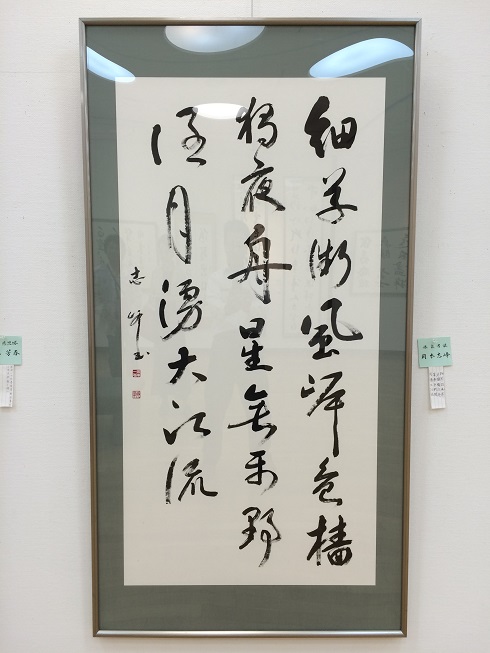 細草微風岸危檣
獨夜舟星垂平野
闊月湧大江流
志峰書